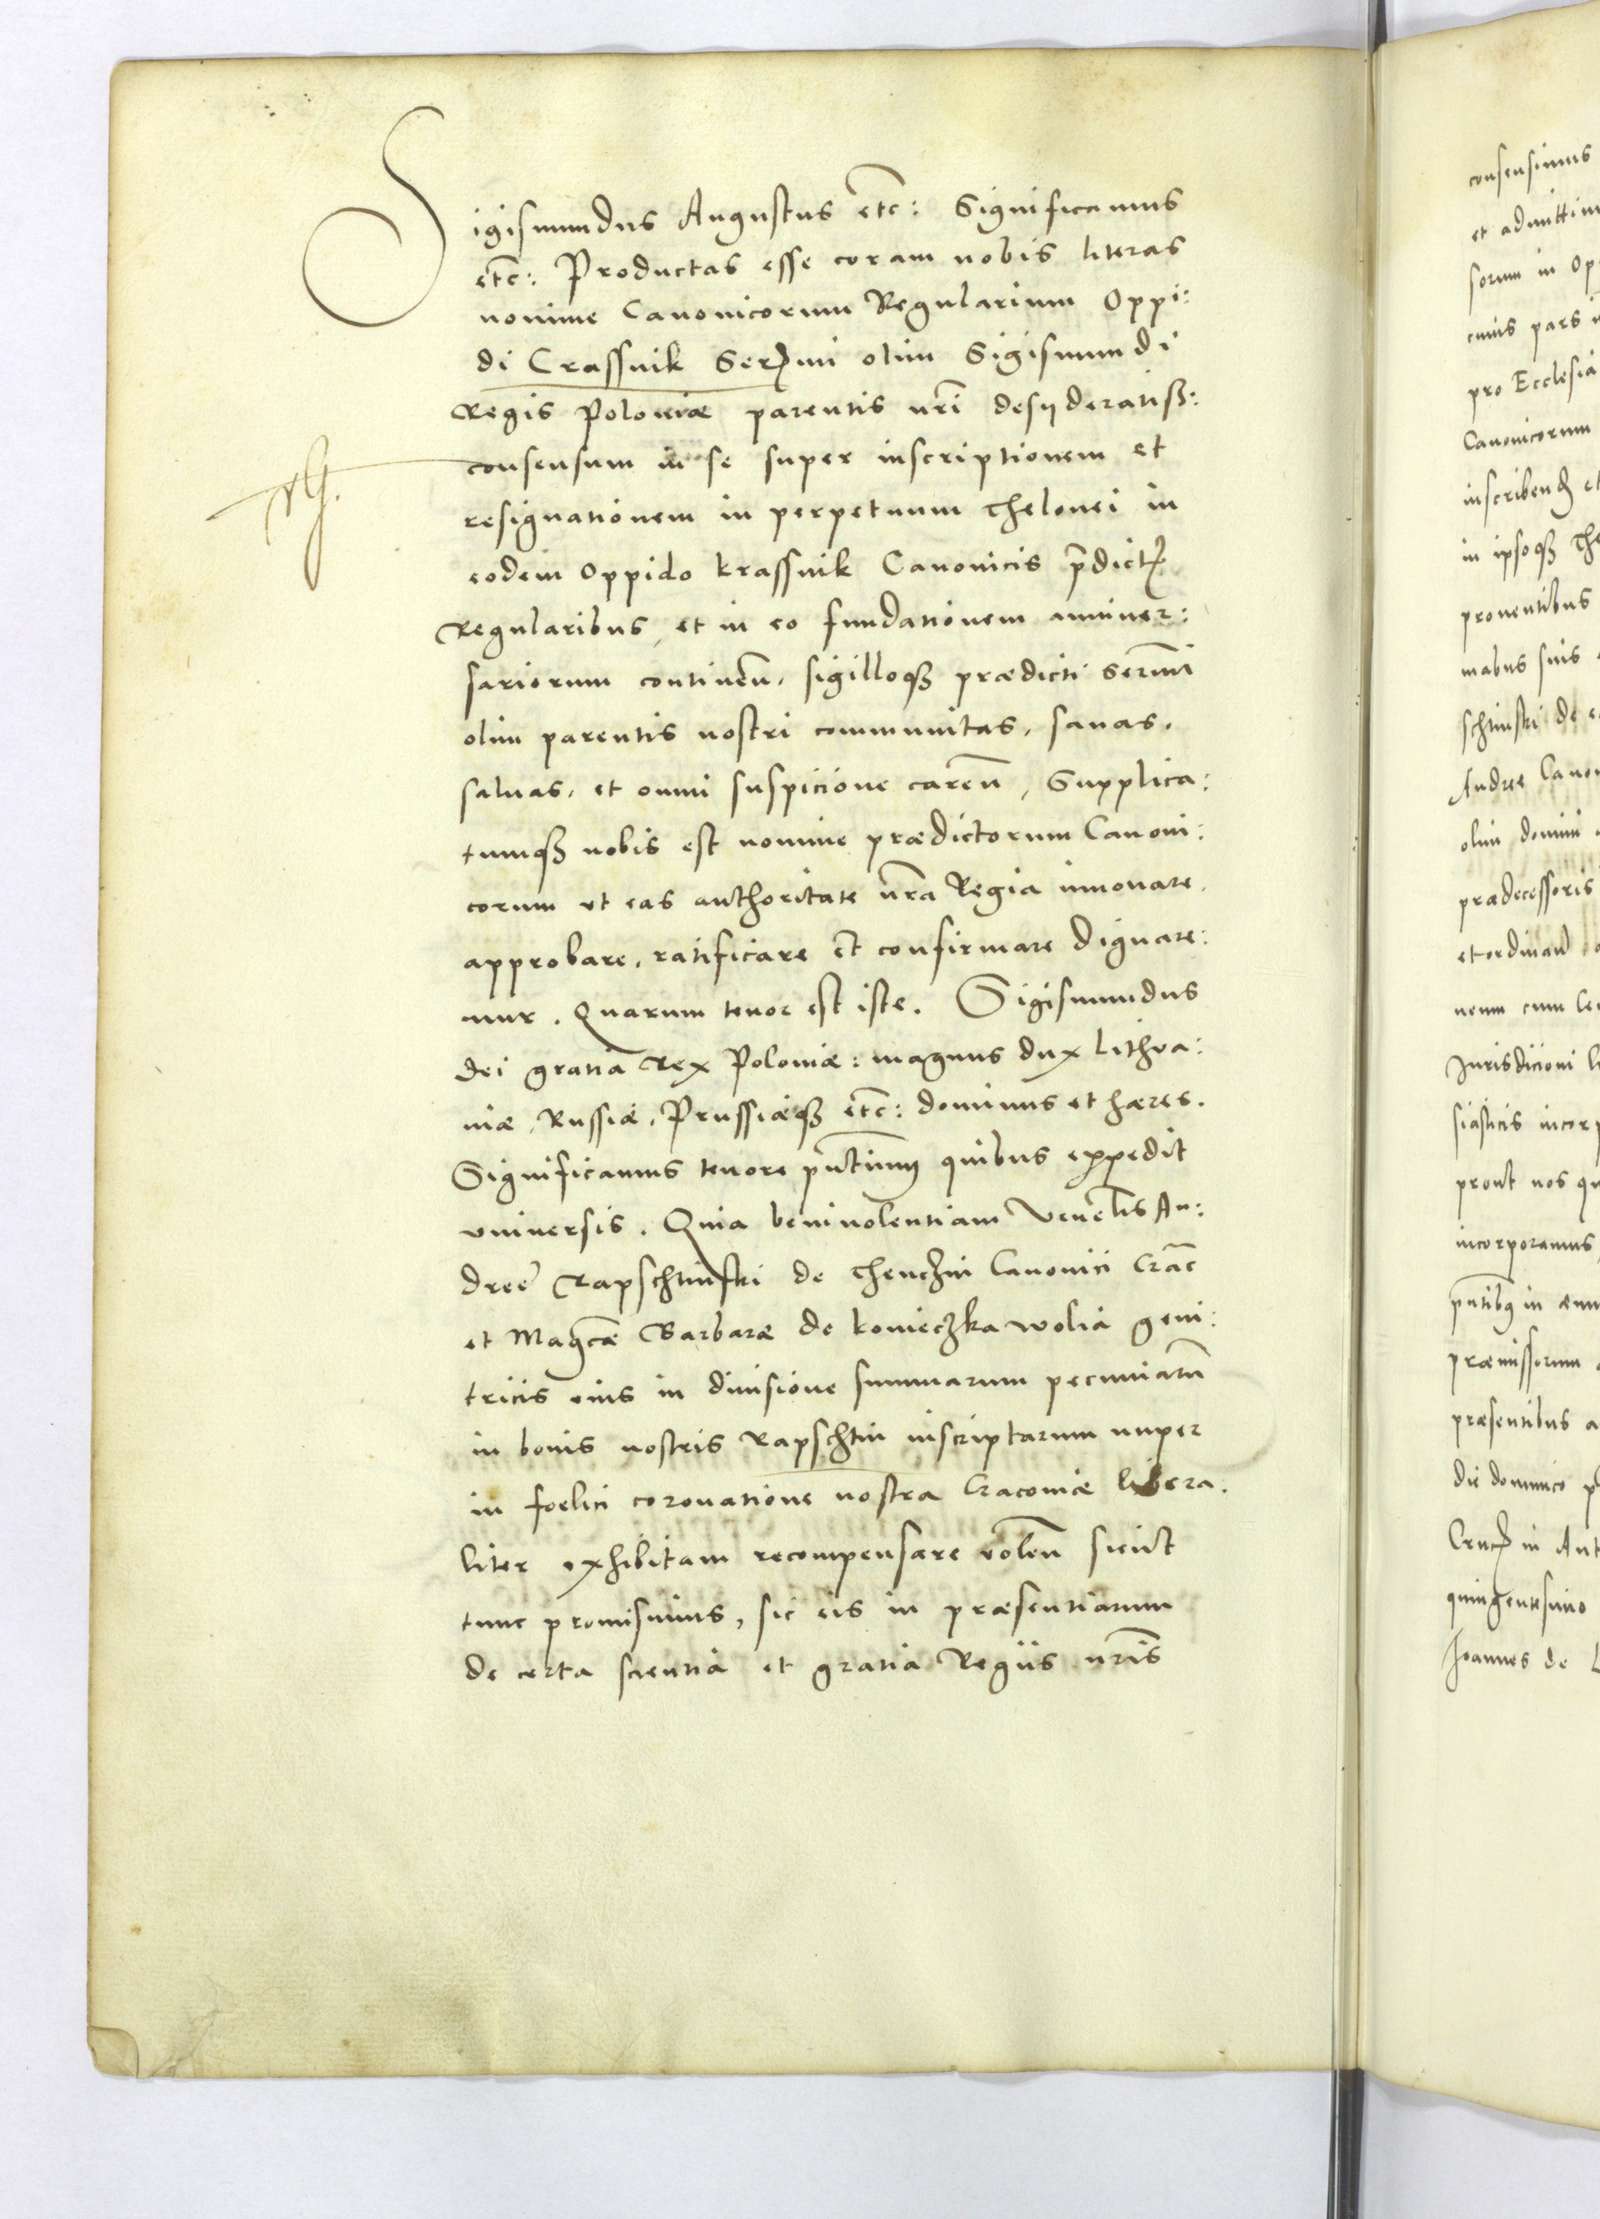 Sigismundus Augustus etc: Significamus
etc: Productas esse coram nobis literas
nomine Canonicorum Regularium Oppi:
di Crassnik Serzmi olim Sigismundi
Regis Poloniæ parentis nri desyderatiss:
consensum in se super inscriptionem et
resignationem in perpetuum Thelonei in
eodem Oppido Krassnik Canonicis prdict
Regularibus, et in eo fundationem anniver:
sariorum continen, sigilloqȝ prædicti sermi
olim parentis nostri communitas, sanas,
salvas, et omni suspicione caren, Supplica:
tumqȝ nobis est nomine prædictorum Canoni:
corum ut eas authoritate nra Regia innovare,
approbare, ratificare et confirmare dignare:
mur. Quarum tenor est iste. Sigismundus
dei gratia Rex Poloniæ: magnus dux Lithva:
niæ, Russiæ, Prussiæqȝ etc: dominus et hæres.
Significamus tenore pntium quibus expedit
vniversis. Quia benivolentiam Venelis An:
dreę Rapschtinski de Thenczin Canonici Crac
et Magcæ Barbaræ de Konieczka wolia geni:
tricis eius in divisione summarum pecuniaru
in bonis nostris Rapschtin inscriptarum nuper
in foelici coronatione nostra Cracoviæ libera:
liter exhibitam recompensare volen sicut
tunc promisimus, sic eis in præsentiarum
de certa scientia et gratia Regiis nris
consensimus
et admittim
sorum in Op
cuius pars i
pro Ecclesia
Canonicorum
inscribend et
in ipsoqȝ The
proventibus
mabus suis
schtinski de e
Andree Cano
olim domini
prædecessoris
et ordinan
neum cum
Jurisdicioni
siasticis incorp
prout nos qu
incorporamus
pntibus in
præmissorum
præsentibus a
die dominico p
Cruc in Ant
quingentesimo
Joannes de L